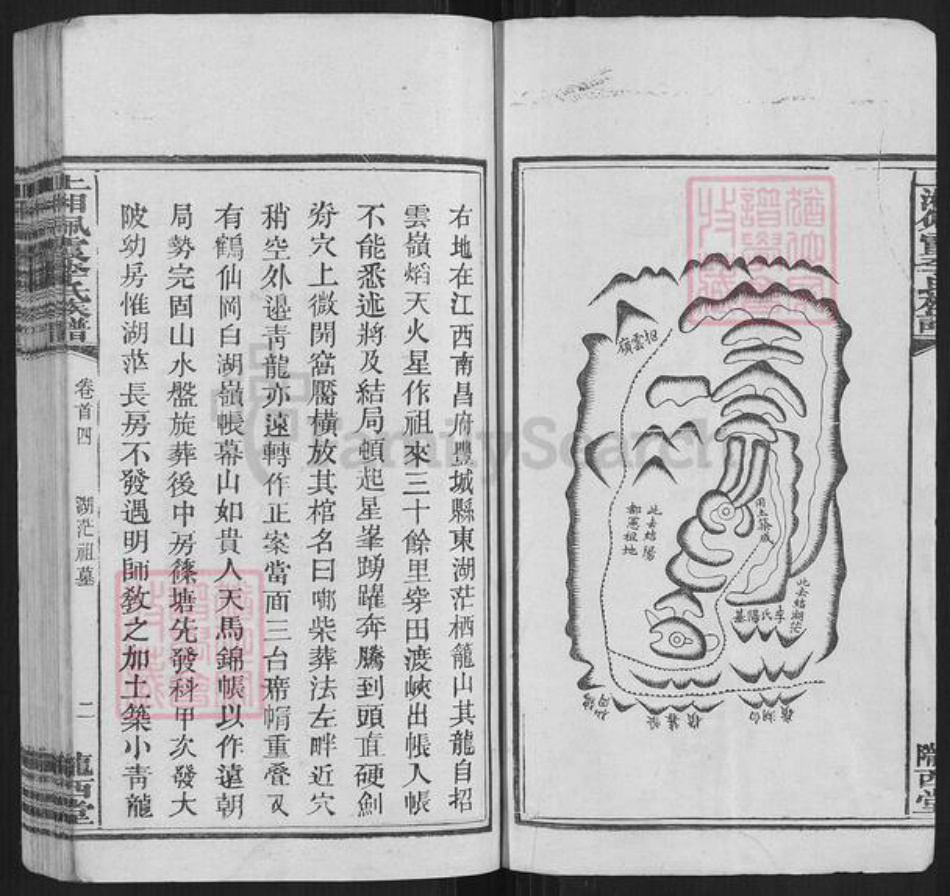 右地在江西南昌府豐城縣東湖茫栖籠山其龍自招
雲嶺熖天火星作祖來三十餘里穿田渡峽出帳入帳
不能悉述將及結局頓起星峯踴躍奔騰到頭直硬劍
脊穴上微開窩靨橫放其棺名曰啣柴葬法左畔近穴
稍空外邊靑龍亦遠轉作正案當面三台席帽重叠又
有鶴仙岡白湖嶺帳幕山如貴人天馬錦帳以作遠朝
局勢完固山水盤旋葬後中房篠塘先發科甲次發大
陂幼房惟湖茫長房不發遇明師敎之加土築小靑龍
上湘佩霞李氏族譜
卷首四
湖茫祖墓
二
隴西堂
招雲嶺
用土築成
此去結陽
都憲祖地
此去結湖茫
李氏陽基
嶺湖白
隴西堂
FamilySearch